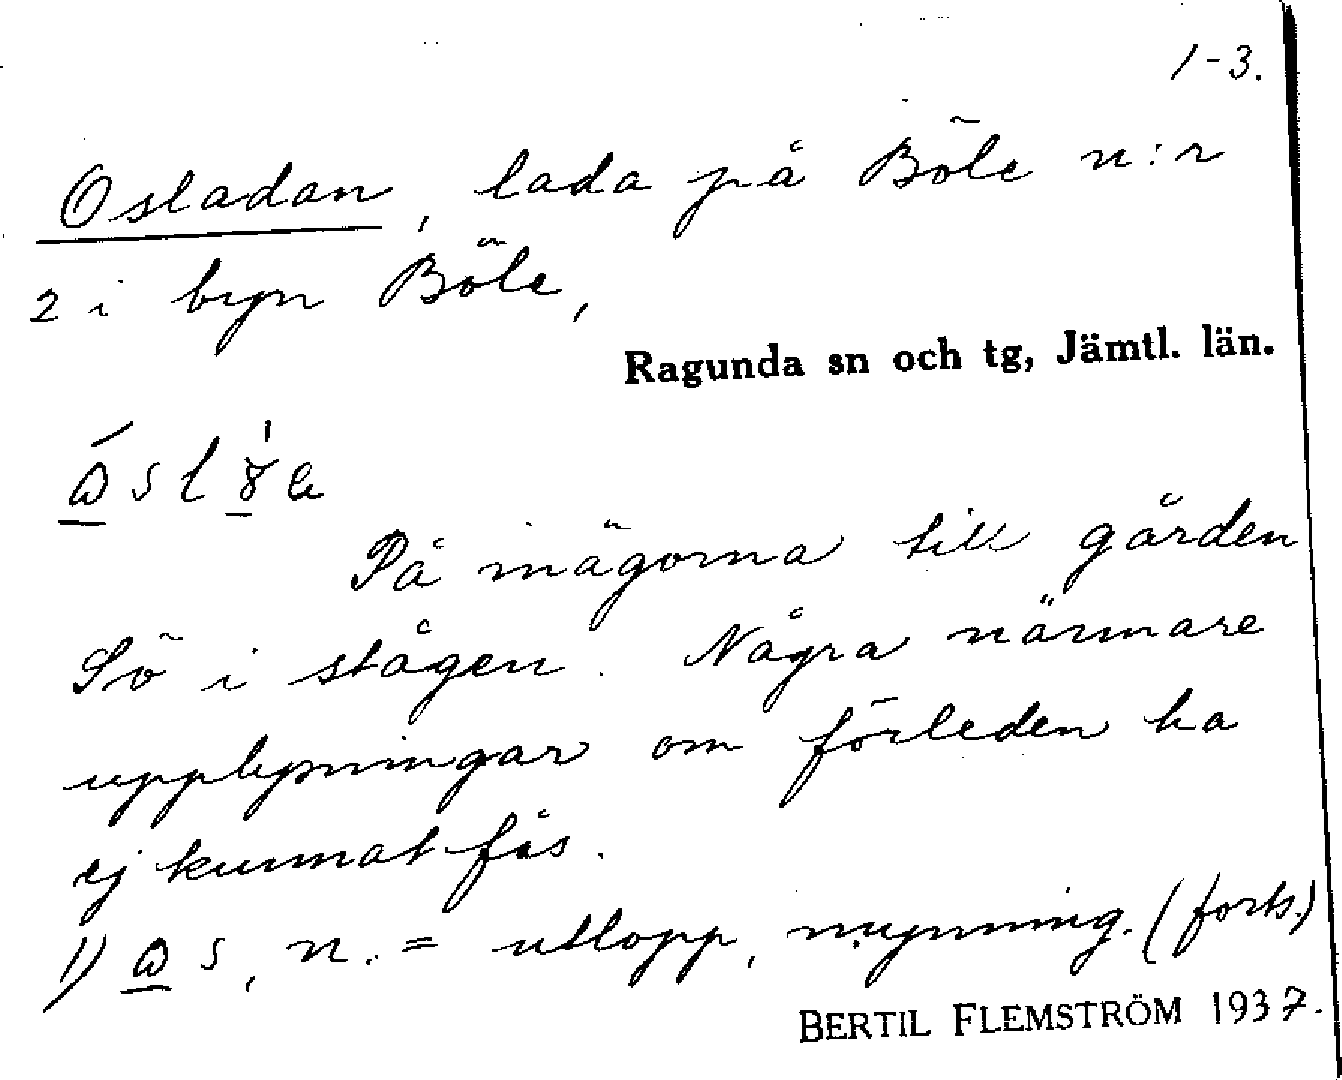 1-3.
Osladan, lada på Böle n:r
2 i byn Böle,
Ragunda sn och tg, Jämtl. län.
På inägorna till gården
Sö i stågen. Några närmare
upplysningar om förleden ha
ej kunnat fås.
1) s, n. = utlopp, mynning. (forts.)
BERTIL FLEMSTRÖM 1937.